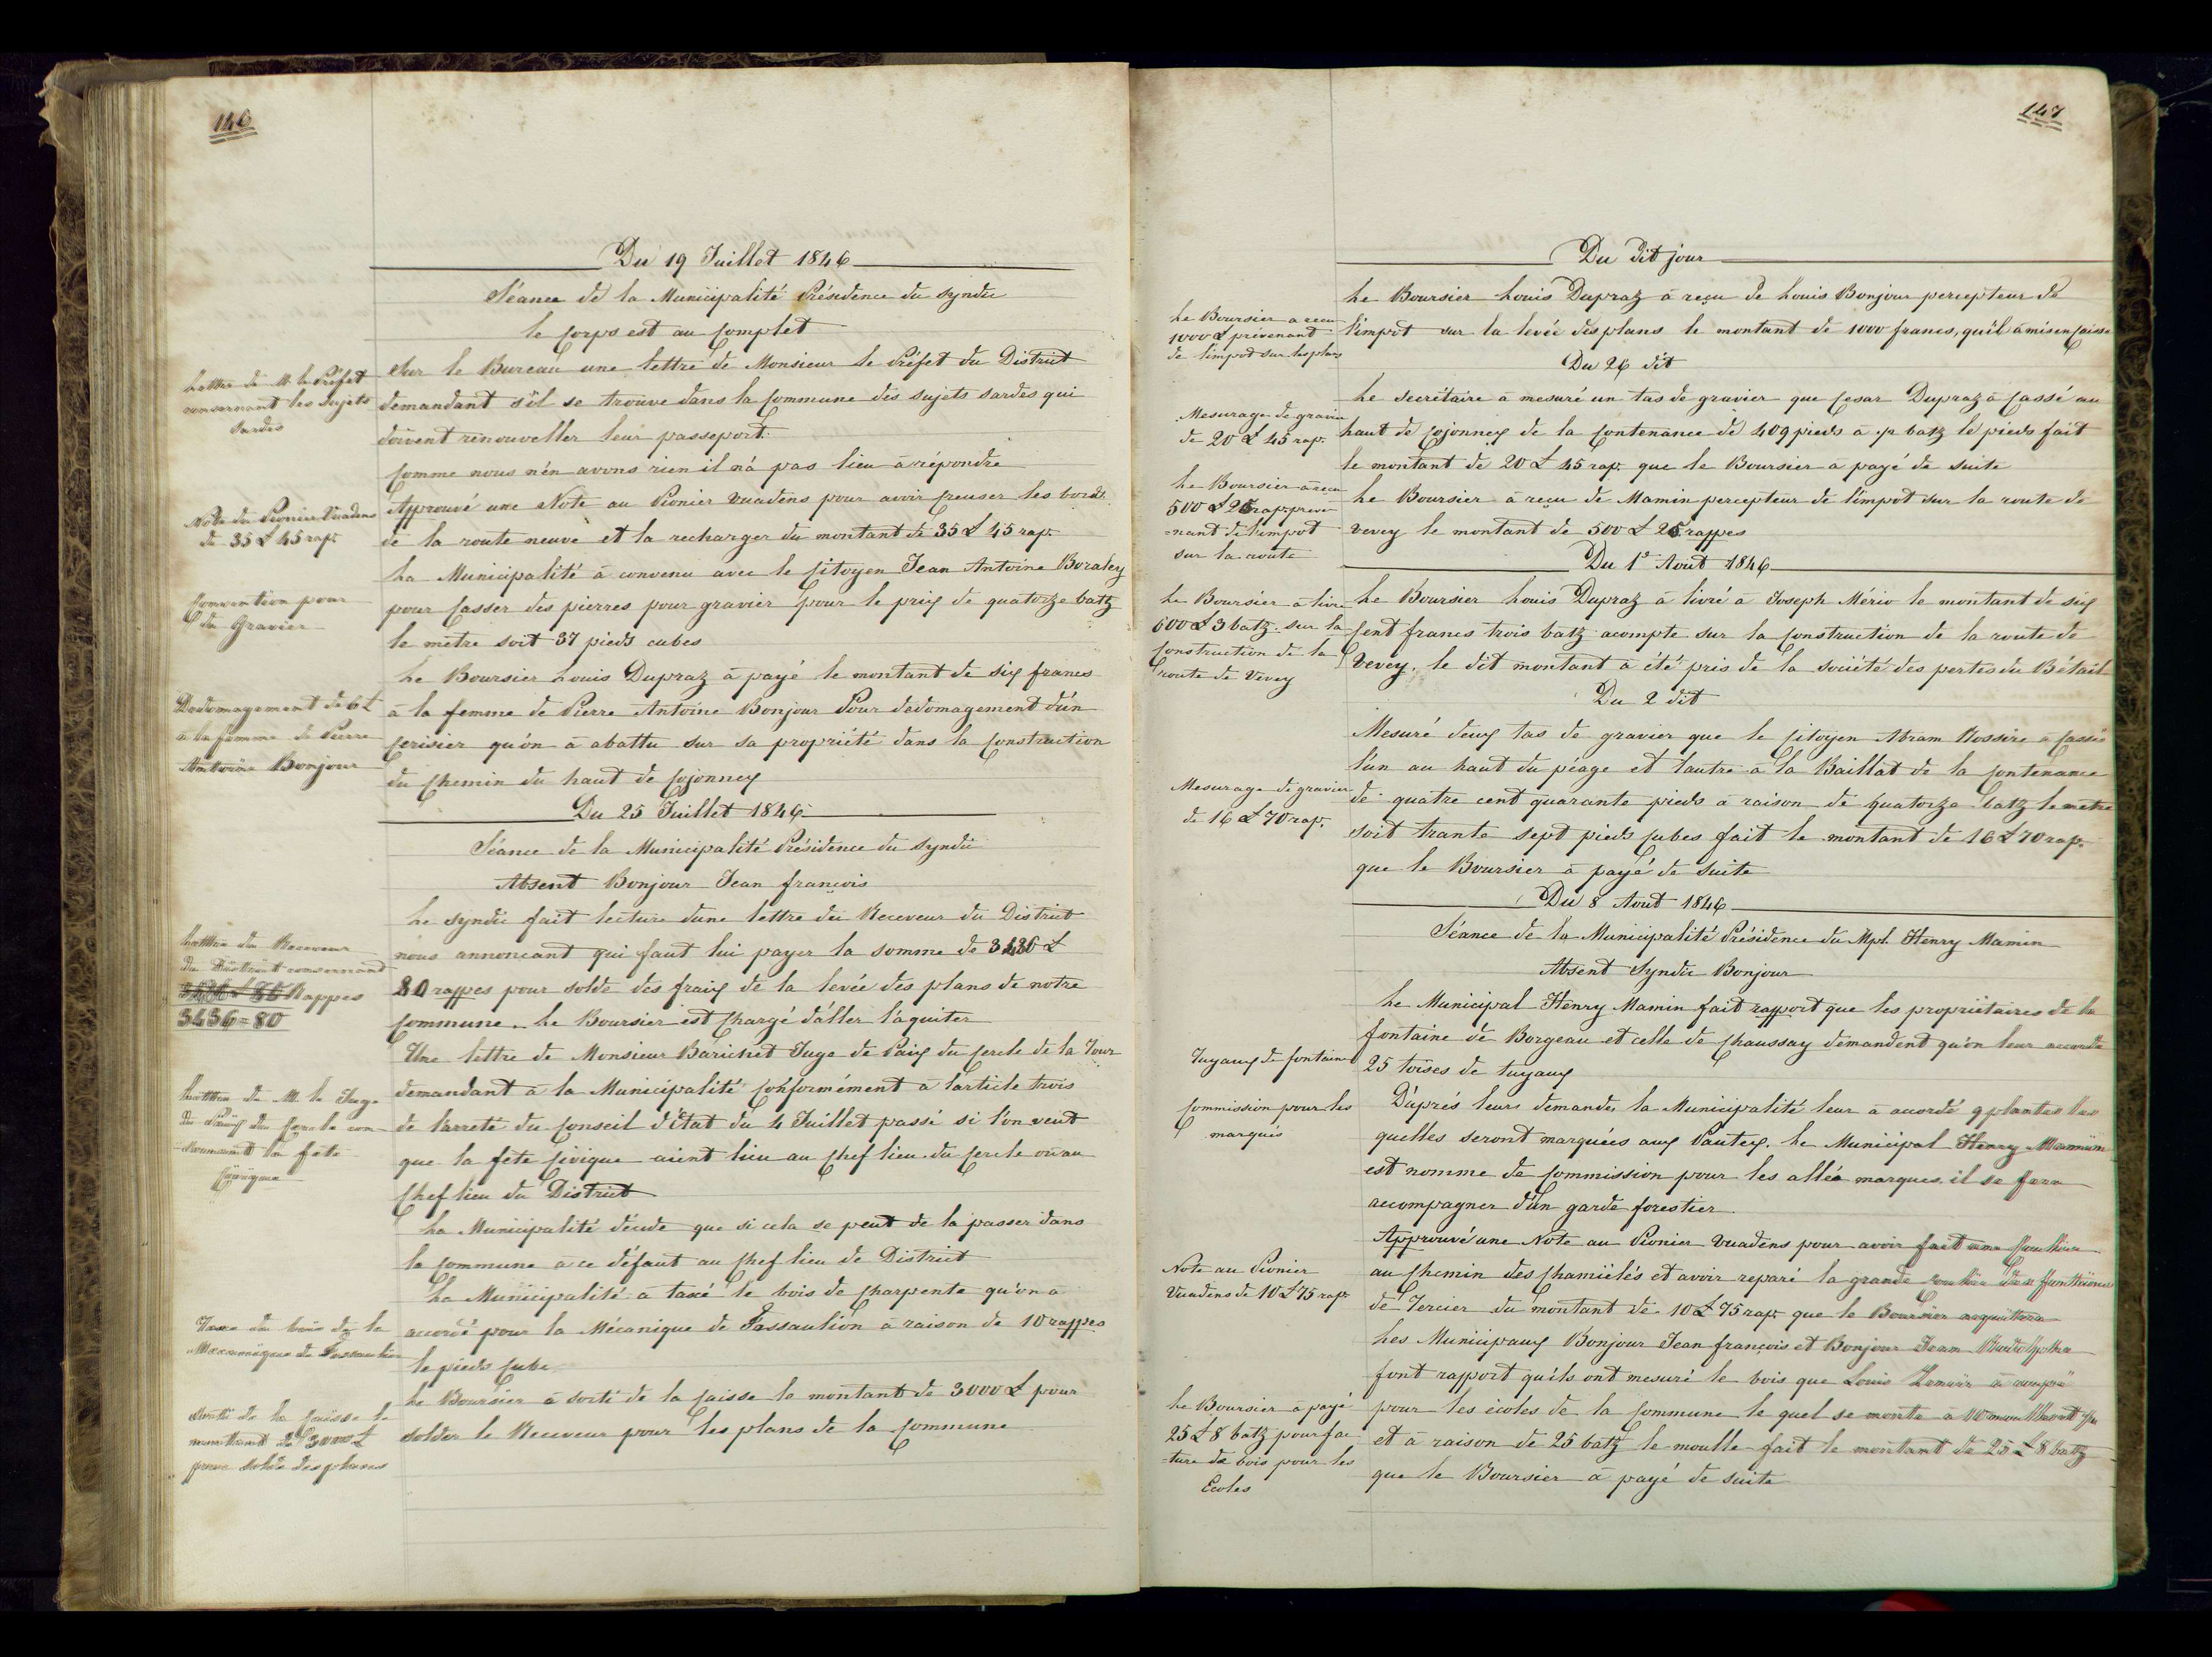 146
Du 19 Juillet 1846
Séance de la Municipalité Présidence du Syndic
le Corps est au Complet
Lettre de M. le Préfet
consernant les Sujets
Sardes
Sur le Bureau une lettre de Monsieur le Préfet du District
demandant s'il se trouve dans la Commune des sujets sardes qui
doivent renouveller leur passeport.
Comme nous n'en avons rien il n'a pas lieu à répondre
Note du Pionier Vuadens
de 35 £ 45 rap.
Approuvé une Note au Pionier Vuadens pour avoir Creuser les bords
de la route neuve et la recharger du montant de 35 £ 45 rap.
Convention pour
du Gravier
La Municipalité à convenu avec le Citoyen Jean Antoine Boraley
pour Casser des pierres pour gravier pour le prix de quatorze batz
le mètre soit 37 pieds cubes
Dedomagement de 6 £
a la femme de Pierre
Antoine Bonjour
Le Boursier Louis Dupraz à payé le montant de six francs
à la femme de Pierre Antoine Bonjour Pour dedomagement d'un
Cerisier qu'on à abattu sur sa propriété dans la Construction
du Chemin du haut de Cojonnex
Du 25 Juillet 1846
Séance de la Municipalité Présidence du Syndic
Absent Bonjour Jean françois
Lettre du Receveur
du District consernant
Rappes
3436=80
Le Syndic fait lecture dune lettre du Receveur du District
nous annoncant qui faut lui payer la somme de 3436 £
80 rappes pour solde des fraix de la levée des plans de notre
Commune. Le Boursier est Chargé d'aller l'aquiter
Lettre de M. le Juge
de Paix du Cercle con-
-sernant la fête
Civique
Une lettre de Monsieur Barichet Juge de Paix du Cercle de la Tour
demandant à la Municipalité Conformément à l'article trois
de l'arreté du Conseil d'État du 4 Juillet passé si l'on veut
que la fête Civique aient lieu au Chef lieu du Cercle ou au
Chef lieu du District
La Municipalité décide que si cela se peut de la passer dans
la Commune à ce défaut au Chef lieu de District
Taxe du bois de la
Mecanique de Fassaulion
La Municipalité à taxé le bois de Charpente qu'on a
accordé pour la Mécanique de Fassaulion à raison de 10 rappes
le pieds Cube
Sorti de la Caisse le
montant de 3000 £
pour solde des plans
Le Boursier à sorti de la Caisse le montant de 3000 £ pour
solder le Receveur pour les plans de la Commune
147
Du dit jour
Le Boursier a reçu
1000 £ prévenant
de l'impot sur les plans
Le Boursier Louis Dupraz à reçu de Louis Bonjour percepteur de
l'impot sur la levée des plans le montant de 1000 francs, qu'il à mis en Caisse
Du 26 dit
Mesurage de gravier
de 20 £ 45 rap.
Le secrétaire à mesuré un tas de gravier que Cesar Dupraz à Cassé au
haut de Cojonnex de la Contenance de 409 pieds à batz le pieds fait
le montant de 20 £ 45 rap. que le Boursier à payé de suite
Le Boursier à reçu
500 £ 25 rap. préve
=nant de l'impot
sur la route
Le Boursier à reçu de Mamin percepteur de l'impot sur la route de
Vevey le montant de 500 £ 25 rappes
Du 1er Aout 1846
Le Boursier à livré
600 £ 3 batz. sur la
Construction de la
route de Vevey
Le Boursier Louis Dupraz à livré à Joseph Mério le montant de six
Cent francs trois batz acompte sur la Construction de la route de
Vevey, le dit montant à été pris de la société des pertes du Bétail
Du 2 dit
Mesurage de gravier
de 16 £ 70 rap.
Mesuré deux tas de gravier que le Citoyen Abram Rossire a Cassé
l'un au haut du péage et l'autre à la Baillat de la Contenance
de quatre cent quarante pieds à raison de quatorze batz le metre
soit trante sept pieds Cubes fait le montant de 16 £ 70 rap.
que le Boursier à payé de suite
Du 8 Aout 1846
Séance de la Municipalité Présidence du Mpl. Henry Mamin
Absent Syndic Bonjour
Tuyaux de fontaine
Le Municipal Henry Mamin fait rapport que les propriètaires de la
fontaine de Borgeau et celle de Chaussay demandent qu'on leur accorde
25 toises de tuyaux
Commission pour les
marqués
D'après leurs demandes la Municipalité leur à accordé 9 plantes les
quelles seront marquées aux Pautex. Le Municipal Henry Mamin
est nomme de Commission pour les allée marques. il se fera
accompagner d'un garde forestier
Note au Pionier
Vuadens de 10 £ 75 rap.
Approuvé une Note au Pionier Vuadens pour avoir fait une
au Chemin des Chamiélés et avoir reparé la grande
de Tercier du montant de 10 £ 75 rap. que le Boursier acquittera
Le Boursier à payé
25 £ 8 batz pour fac
=ture de bois pour les
Ecoles
Les Municipaux Bonjour Jean françois et Bonjour Jean Rodolphe
font rapport qu'ils ont mesuré le bois que Louis à coupé
pour les écoles de la Commune le quel se monte à 10
et à raison de 25 batz le moulle fait le montant de 25 £ 8 batz
que le Boursier à payé de suite